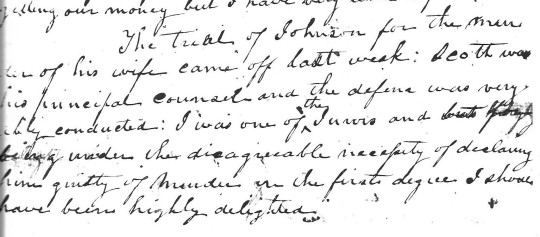 getting our money but I have very
The trial of Johnson for the mur
der of his wife came off last week: Scott was
his principal counsel and the defence was very
ably conducted: I was one of the Jurors and but
being under the disagreeable necessity of declaring
him guilty of Murder in the first degree I should
have been highly delighted.